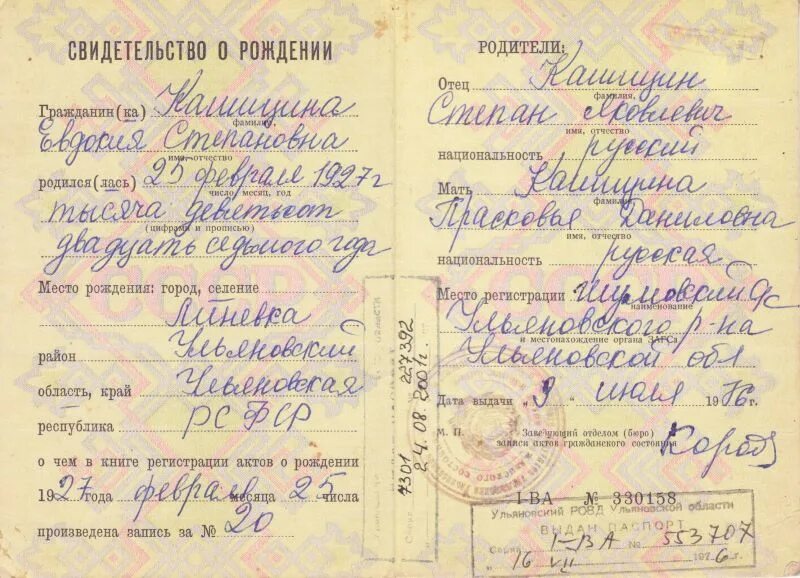 СВИДЕТЕЛЬСТВО О РОЖДЕНИИ
Гражданин(ка) Кашицина
фамилия,
Евдокия Степановна
имя, отчество
родился(лась) 25 февраля 1927 г
число, месяц, год
тысяча девятьсот
(цифрами и прописью)
двадцать седьмого года
Место рождения: город, селение
район Ульяновский
область, край Ульяновская
республика РСФСР
о чем в книге регистрации актов о рождении
1927 года февраля месяца 25 числа
произведена запись за № 20
7301 227392
24.08.2001г.
РОДИТЕЛИ:
Отец Кашицин
фамилия,
Степан Яковлевич
имя, отчество
национальность русский
Мать Кашицина
фамилия,
Прасковья Даниловна
имя, отчество
национальность русская
Место регистрации Шумовский с/с
наименование
Ульяновского р-на
и местонахождение органа ЗАГСа
Ульяновской обл
Дата выдачи „9 июля 1976г.
М. П. Заведующий отделом (бюро)
записи актов гражданского состояния
I-ВА № 330158
Ульяновский РОВД Ульяновской области
ВЫДАН ПАСПОРТ
Серия I-ВА № 553707
„16 VII 1976г.